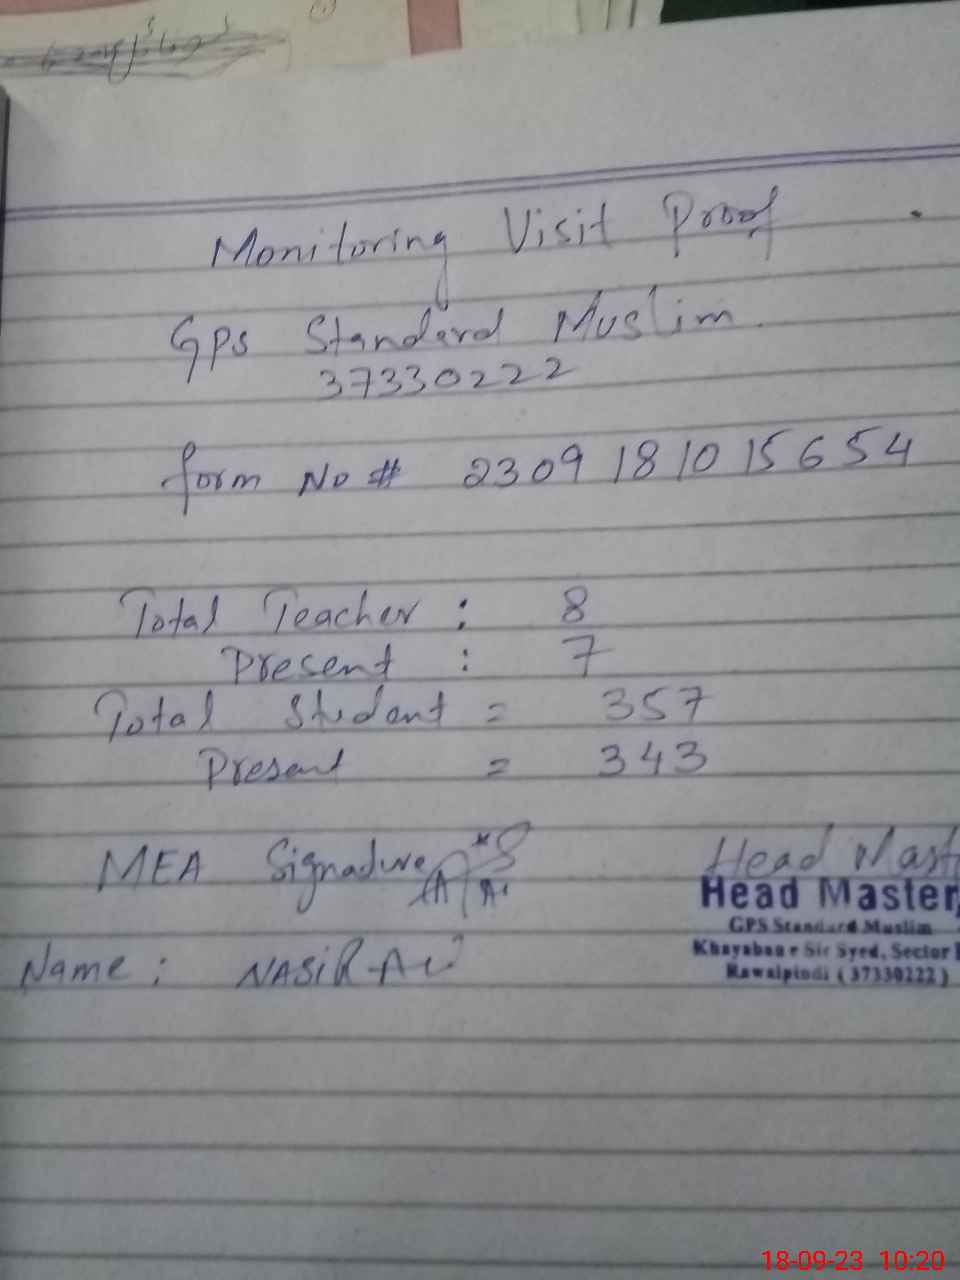 Monitoring Visit Proof
GPS Standard Muslim.
37330222
form No # 2309181015654
Total Teacher : 8
Present : 7
Total Student = 357
Present = 343
MEA Signature
Head Mast
Head Master,
GPS Standard Muslim
Khayaban e Sir Syed, Sector
Rawalpindi (37330222)
Name : NASIR Ali
18-09-23 10:20